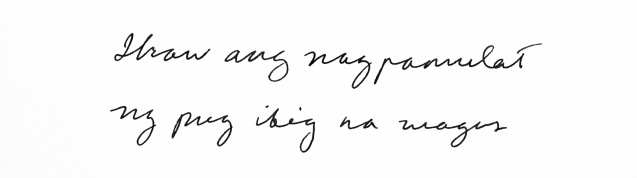 Ikaw ang nagpamulat
ng pag ibig na wagas